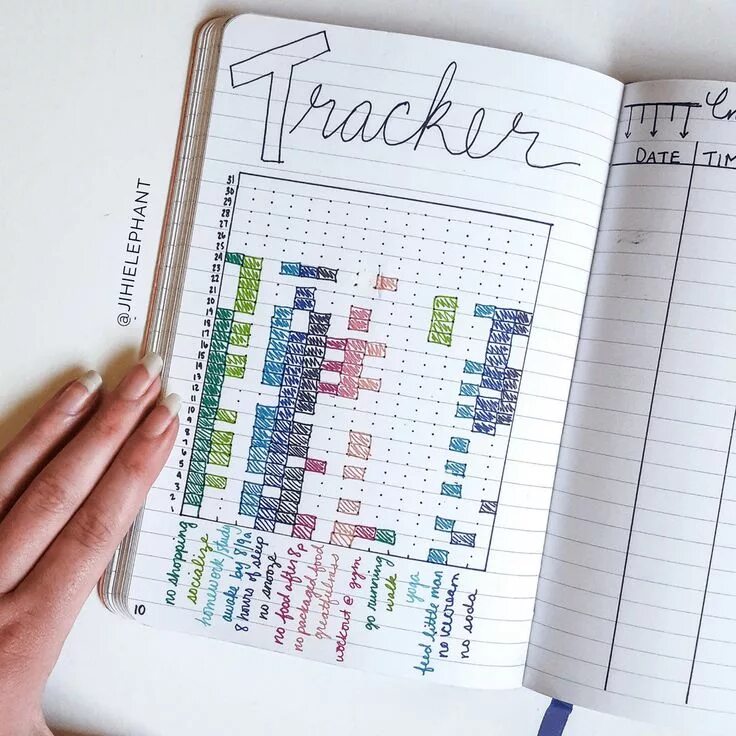 Tracker
31
30
29
28
27
26
25
24
23
22
21
20
19
18
17
16
15
14
13
12
11
10
9
8
7
6
5
4
3
2
1
no shopping
socialize
homework/study
awake by 8/9a
8 hours of sleep
no snooze
no food after 8p
no packaged food
greatfulness
workout @ gym
go running
walk
yoga
feed little man
no icecream
no soda
10
@JIHIELEPHANT
DATE TIM